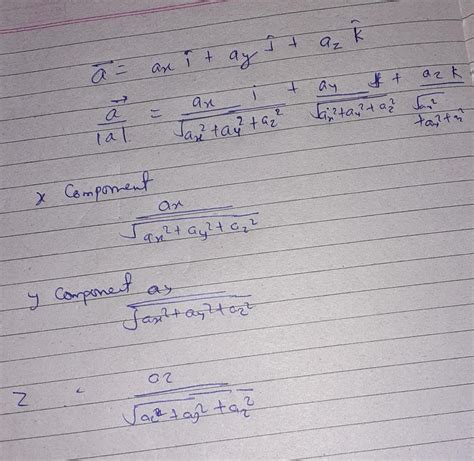 a⃗ = ax i + ay ĵ + az k̂
a⃗/|a| = ax/√(ax² + ay² + az²) i + ay/√(ax² + ay² + az²) j + az/√(ax² + ay² + az²) k
x Component
ax/√(ax² + ay² + az²)
y Component ay/√(ax² + ay² + az²)
z " az/√(ax² + ay² + az²)